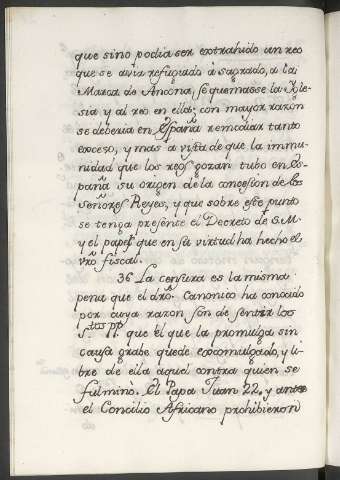 que sino podia ser extrahido un reo
que se avia refugiado à sagrado, a la
Marca de Ancona, se quemasse la Igle-
sia y al reo en ella: con mayor razon
se deberia en España remediar tanto
exceso, y mas a vista de que la immu-
nidad que los reos gozan tubo en Es-
paña su origen de la concesion de los
Señores Reyes, y que sobre este punto
se tenga presente el Decreto de S.M.
y el papel que en su virtud ha hecho el
vro fiscal.
36 La censura es la misma
pena que el dro. Canonico ha conocido
por cuya razon son de sentir los
S.tos PP. que él que la promulga sin
causa grabe quede excomulgado, y li-
bre de ella aquel contra quien se
fulminò. El Papa Juan 22. y antes
el Concilio Africano prohibieron